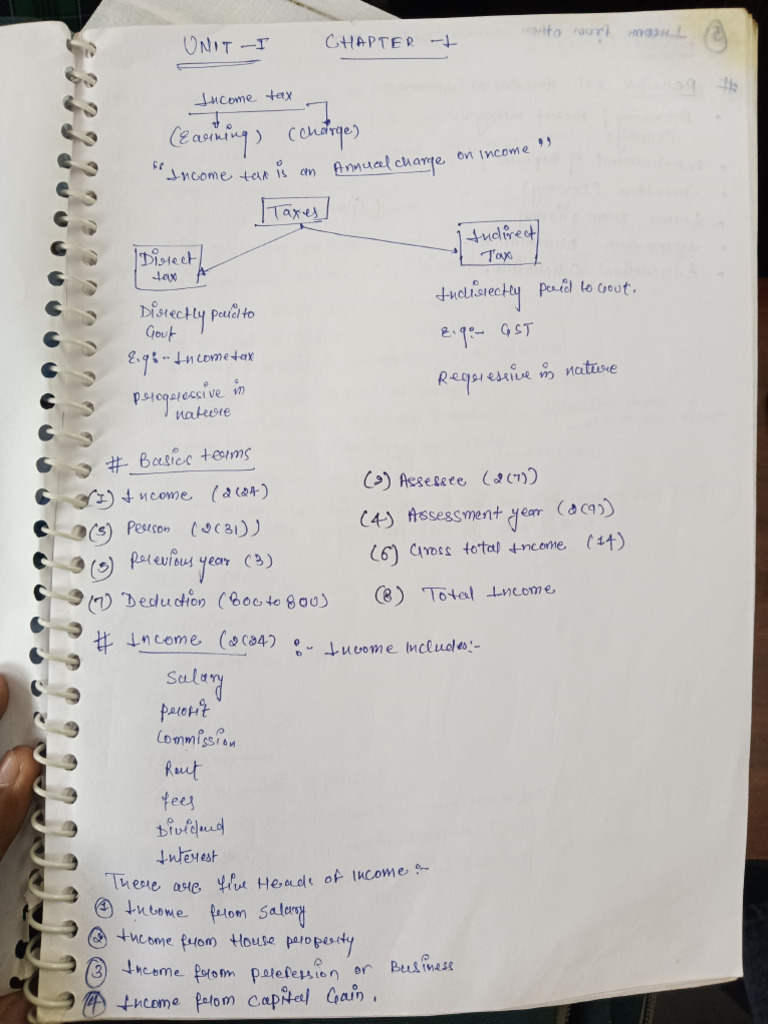 UNIT-I CHAPTER-1
Income tax
(Earning) (Charge)
"Income tax is an Annual charge on income"
Taxes
Direct tax
Directly paid to
Govt
E.g:- Income tax
progressive in
nature
Indirect
Tax
Indirectly paid to Govt.
E.g:- GST
Regressive in nature
# Basics terms
(1) Income (2(24)
(2) Assessee (2(7))
(3) Person (2(31))
(4) Assessment year (2(9))
(5) Previous year (3)
(6) Gross total Income (14)
(7) Deduction (80C to 80U)
(8) Total Income
# Income (2(24) :- Income Includes:-
Salary
profit
Commission
Rent
fees
Dividend
Interest
There are five Heads of income :-
① Income from Salary
② Income from House property
③ Income from profession or Business
④ Income from Capital Gain.